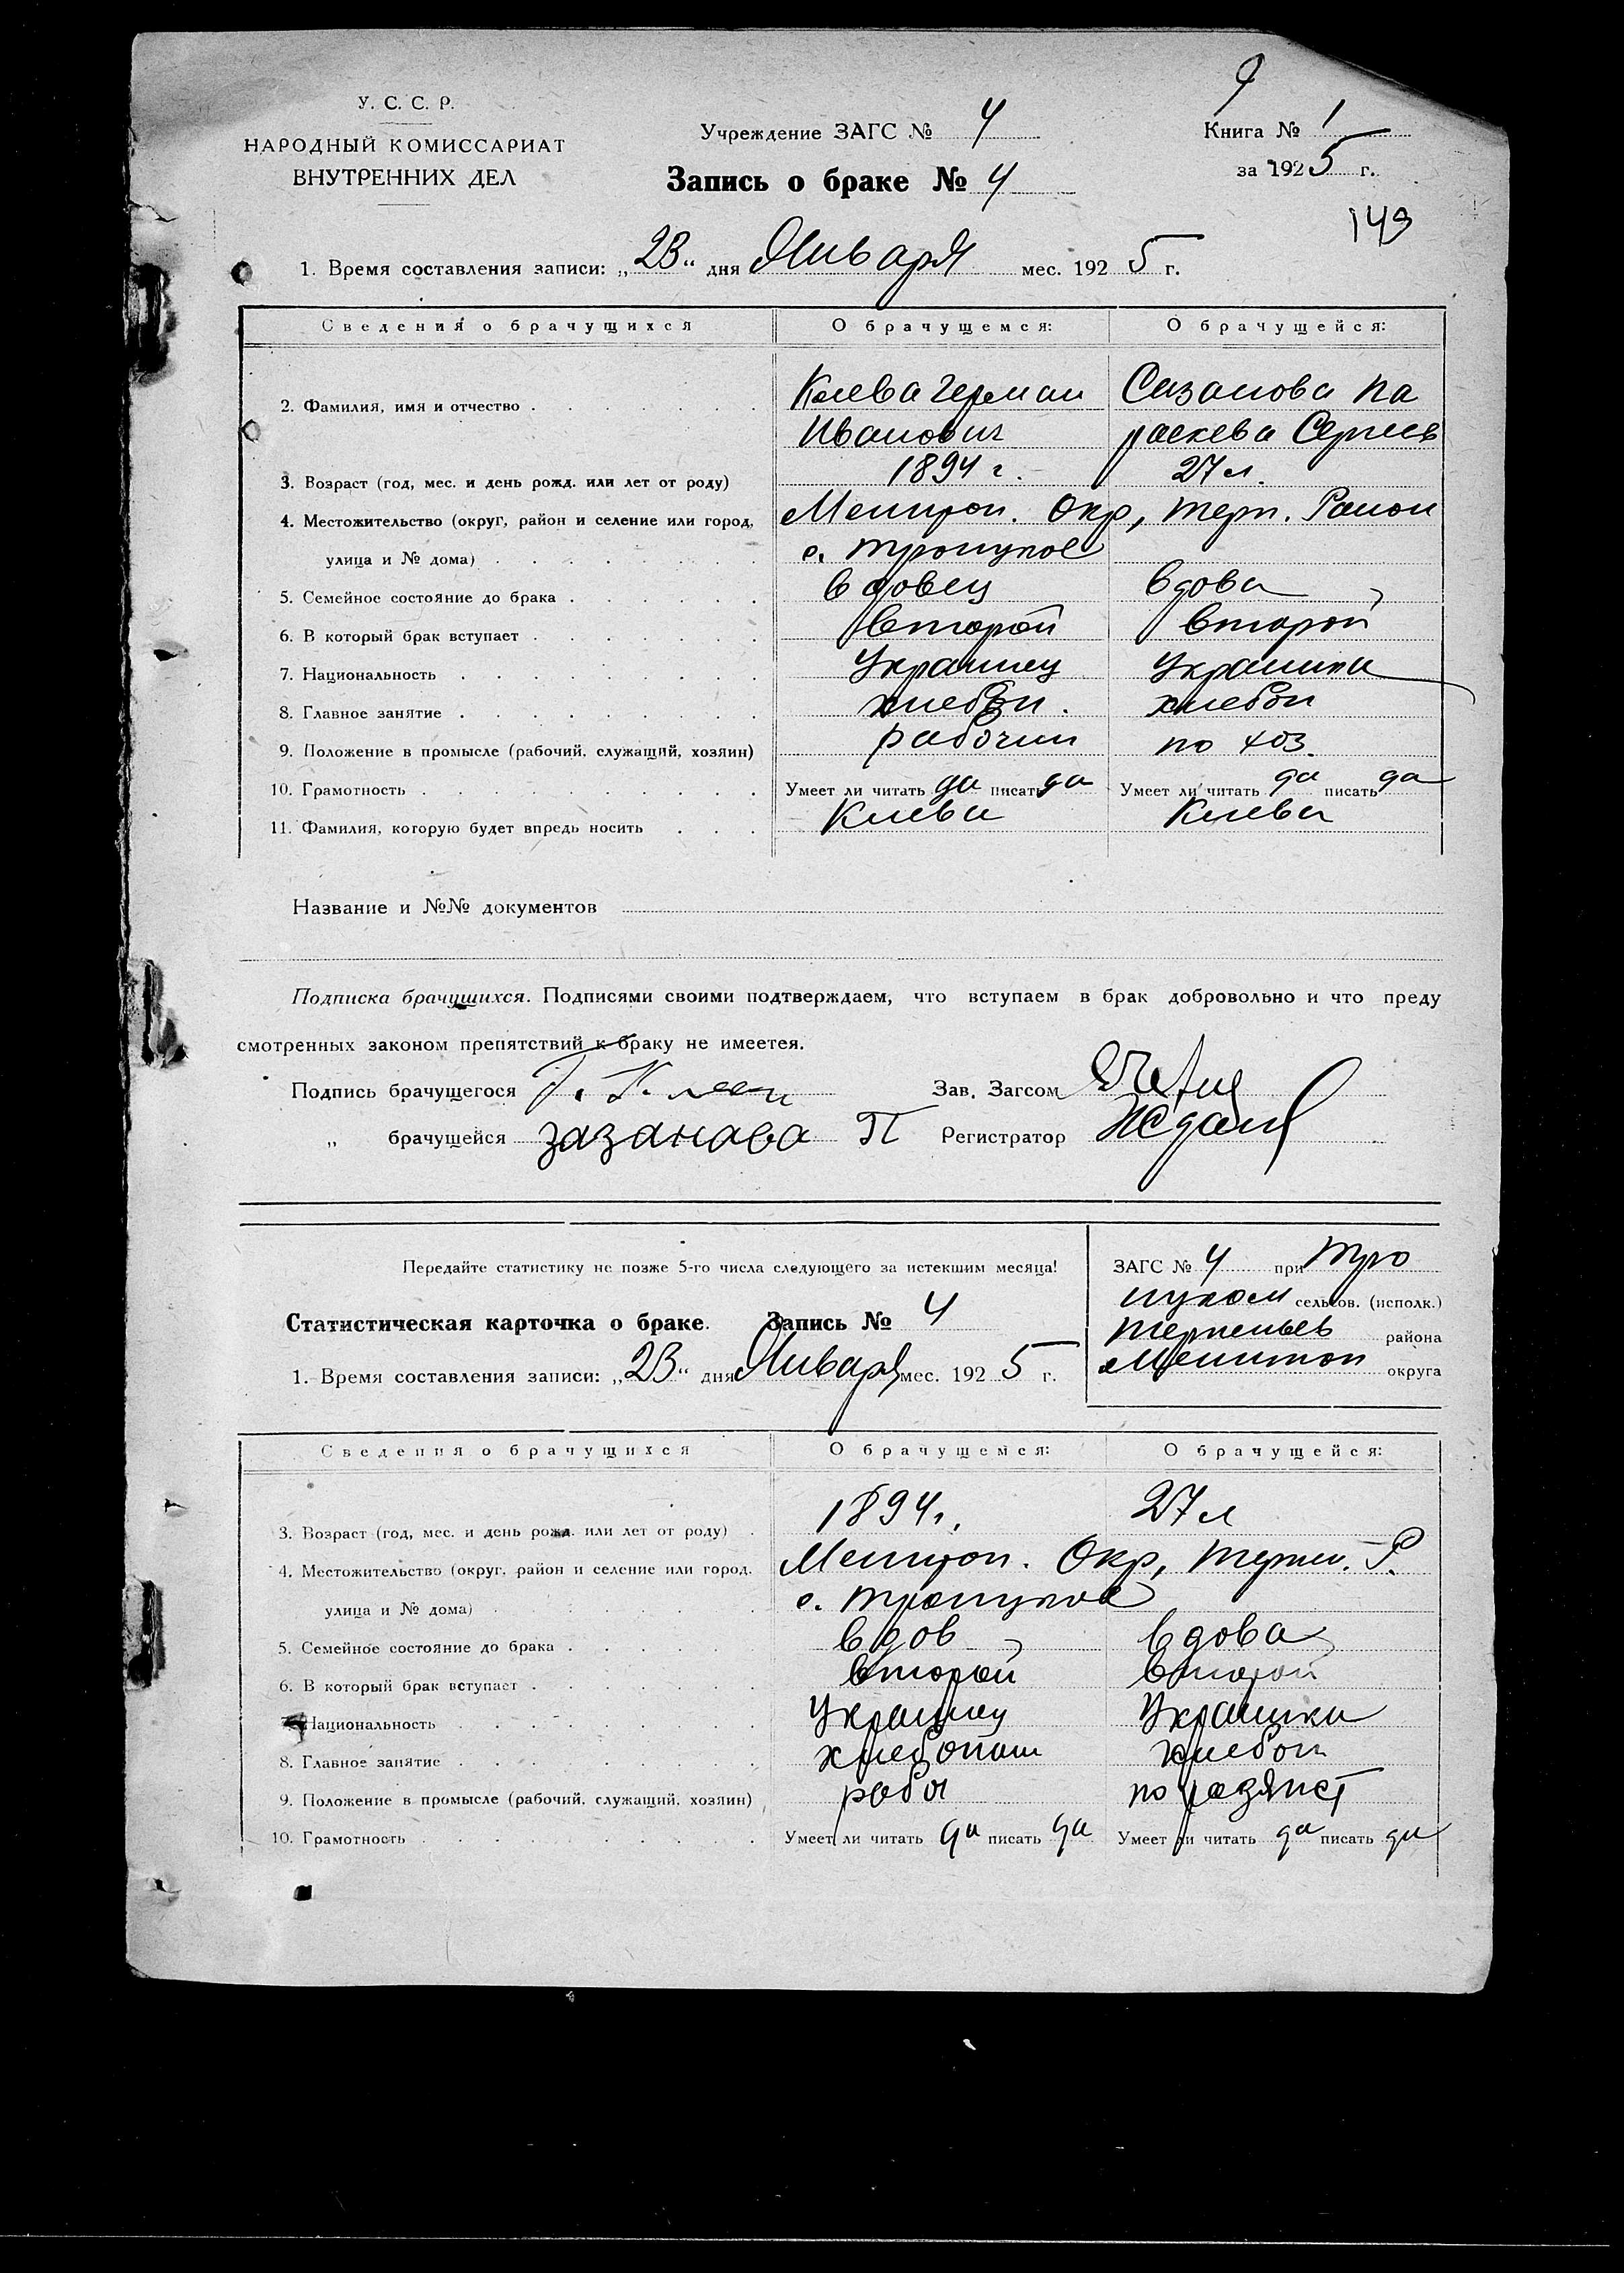 9
У. С. С. Р.
НАРОДНЫЙ КОМИССАРИАТ
ВНУТРЕННИХ ДЕЛ
Учреждение ЗАГС № 4
Книга № 1
Запись о браке № 4
за 1925 г.
149
1. Время составления записи: „23“ дня Января мес. 1925 г.
Сведения о брачущихся О брачущемся: О брачущейся:
2. Фамилия, имя и отчество Клева Герман Сазанова Па
Иванович раскева Сергеев
3. Возраст (год, мес. и день рожд. или лет от роду) 1894 г. 27 л.
4. Местожительство (округ, район и селение или город, Мелитоп. Окр, терп. Район
улица и № дома) с. Троицкое
5. Семейное состояние до брака вдовец вдова
6. В который брак вступает второй второй
7. Национальность Украинец Украинка
8. Главное занятие хлебоп. хлебоп
9. Положение в промысле (рабочий, служащий, хозяин) рабочий по хоз.
10. Грамотность Умеет ли читать да писать да Умеет ли читать да писать да
11. Фамилия, которую будет впредь носить Клева Клева
Название и №№ документов
Подписка брачущихся. Подписями своими подтверждаем, что вступаем в брак добровольно и что преду
смотренных законом препятствий к браку не имеется.
Подпись брачущегося Г. Зав. Загсом
„ брачущейся зазанава П Регистратор
Передайте статистику не позже 5-го числа следующего за истекшим месяца!
ЗАГС № 4 при Тро
ицком сельсов. (исполк.)
Статистическая карточка о браке. Запись № 4
Терпеньев района
1. Время составления записи: „23“ дня Января мес. 1925 г.
Мелитоп округа
Сведения о брачущихся О брачущемся: О брачущейся:
3. Возраст (год, мес. и день рожд. или лет от роду) 1894 г. 27 л
4. Местожительство (округ, район и селение или город, Мелитоп. Окр, терпен. Р.
улица и № дома) с. Троицкое
5. Семейное состояние до брака вдов вдова
6. В который брак вступает второй второй
7. Национальность Украинец Украинка
8. Главное занятие хлебопаш хлебоп
9. Положение в промысле (рабочий, служащий, хозяин) рабоч по
10. Грамотность Умеет ли читать да писать да Умеет ли читать да писать да